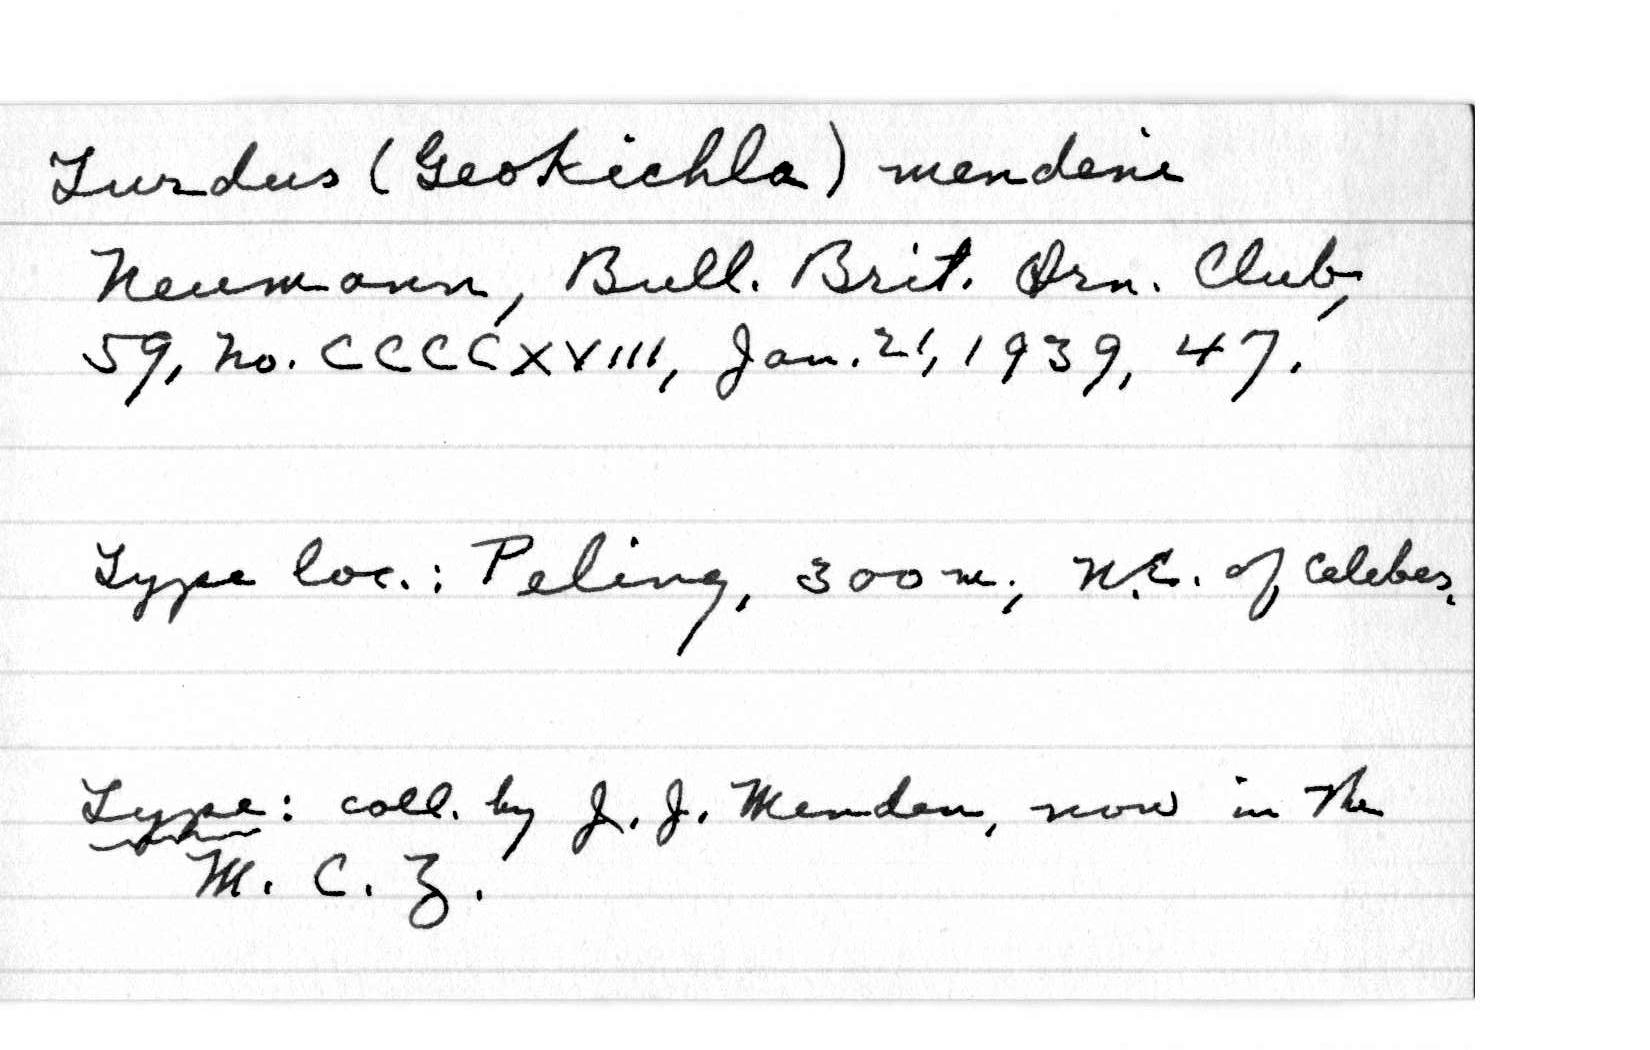 Turdus (Geokichla) mendeni
Neumann, Bull. Brit. Orn. Club,
59, no. CCCCXVIII, Jan. 21, 1939, 47.
Type loc.: Peling, 300 m; N.E. of Celebes.
Type: coll. by J. J. Menden, now in the
M. C. Z.